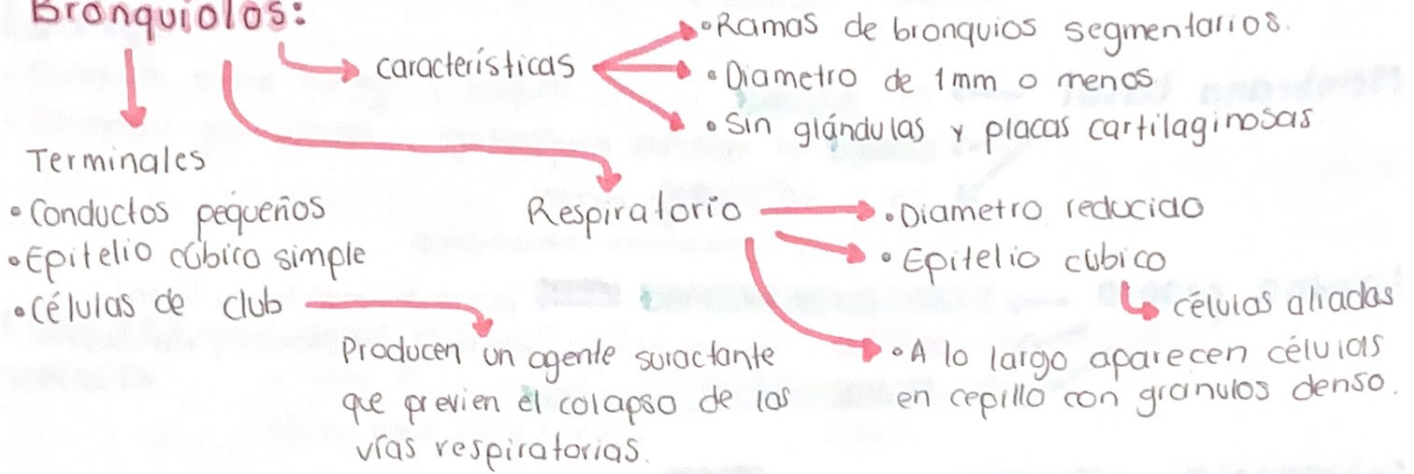 Bronquiolos:
características
•Ramas de bronquios segmentarios.
•Diametro de 1mm o menos
•Sin glándulas y placas cartilaginosas
Terminales
•Conductos pequeños
•Epitelio cúbico simple
•Células de club
Producen un agente suractante
que previen el colapso de las
vías respiratorias.
Respiratorio
•Diametro reducido
•Epitelio cubico
células aliadas
•A lo largo aparecen células
en cepillo con granulos denso.